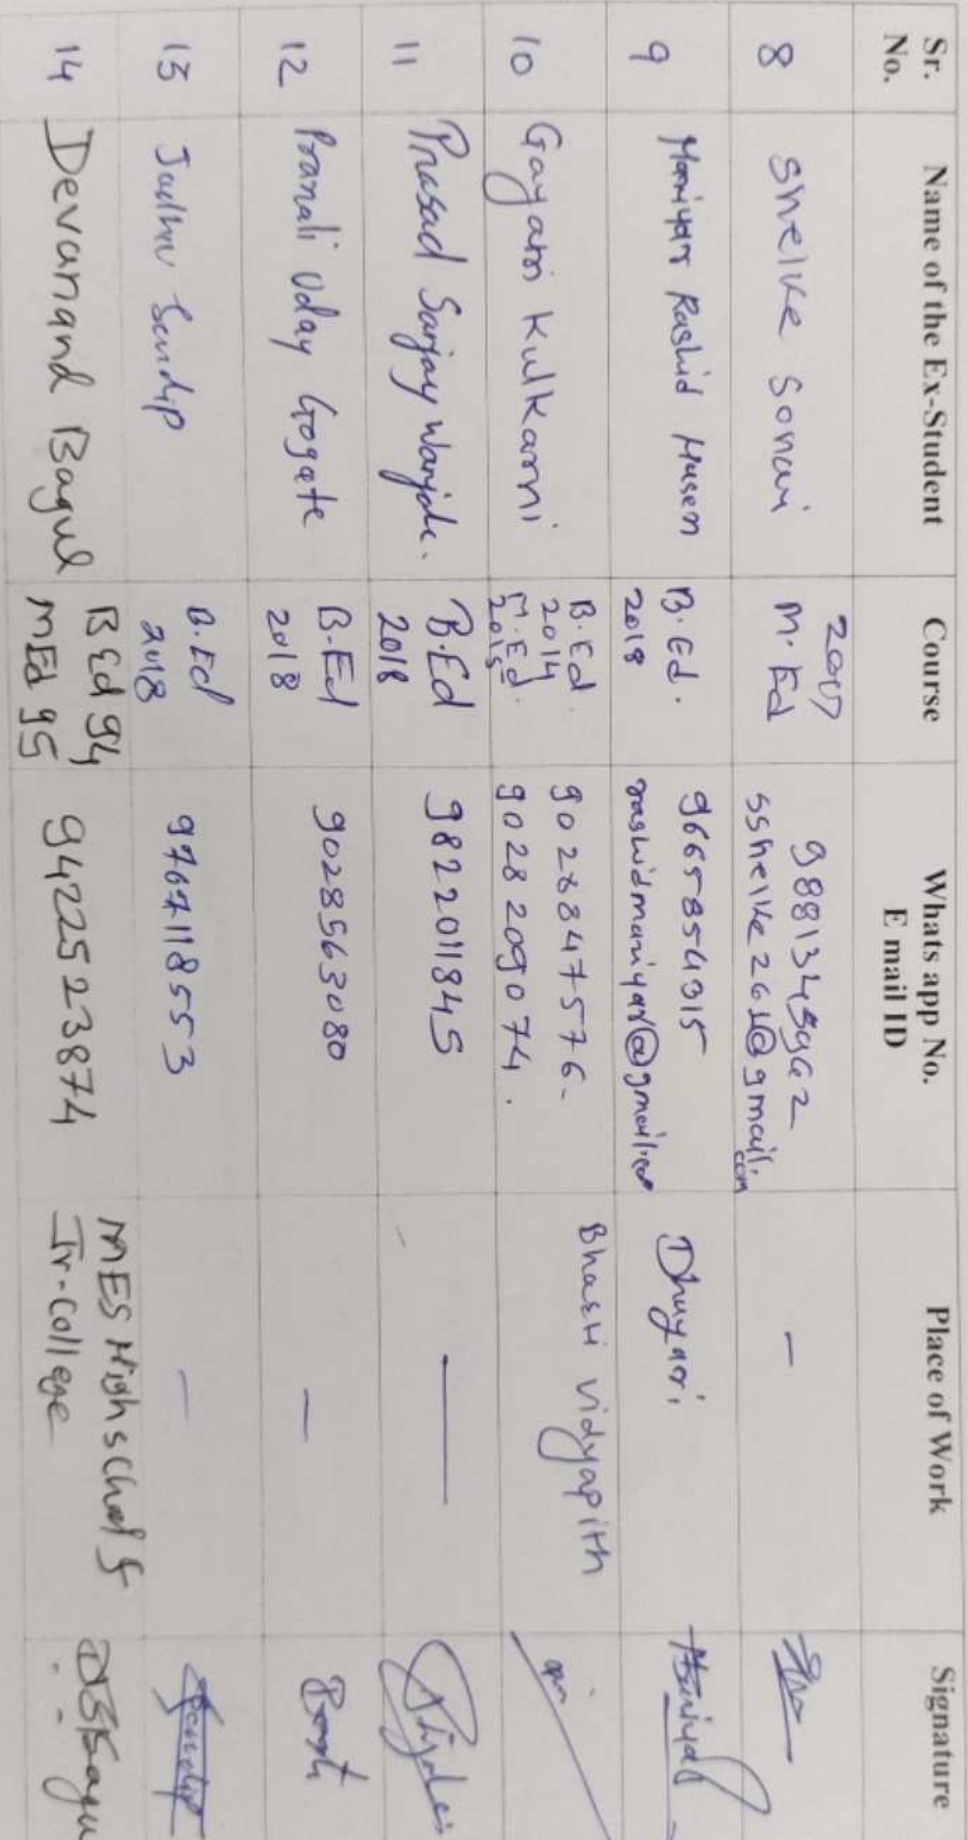 Sr. No. Name of the Ex-Student Course Whats app No. E mail ID Place of Work Signature
8 Shelke Sonai 2017 M.Ed sshelke261@gmail.com -
9 Maniyar Rashid Husen B.Ed. 2018 9665854315 rashidmaniyar@gmail.com Dhayari,
10 Gayatri Kulkarni B.Ed. 2014 M.Ed. 2015 9028847576- 9028209074. Bhasti vidyapith
11 Prasad Sanjay Wanjale. B.Ed 2018 9822011845 —
12 Pranali Uday Gogate B.Ed 2018 9028563080 -
13 Jadhav Sandip B.Ed 2018 9767118553 -
14 Devanand Bagul B Ed 94 MEd 95 9422523874 MES High school & Jr-College